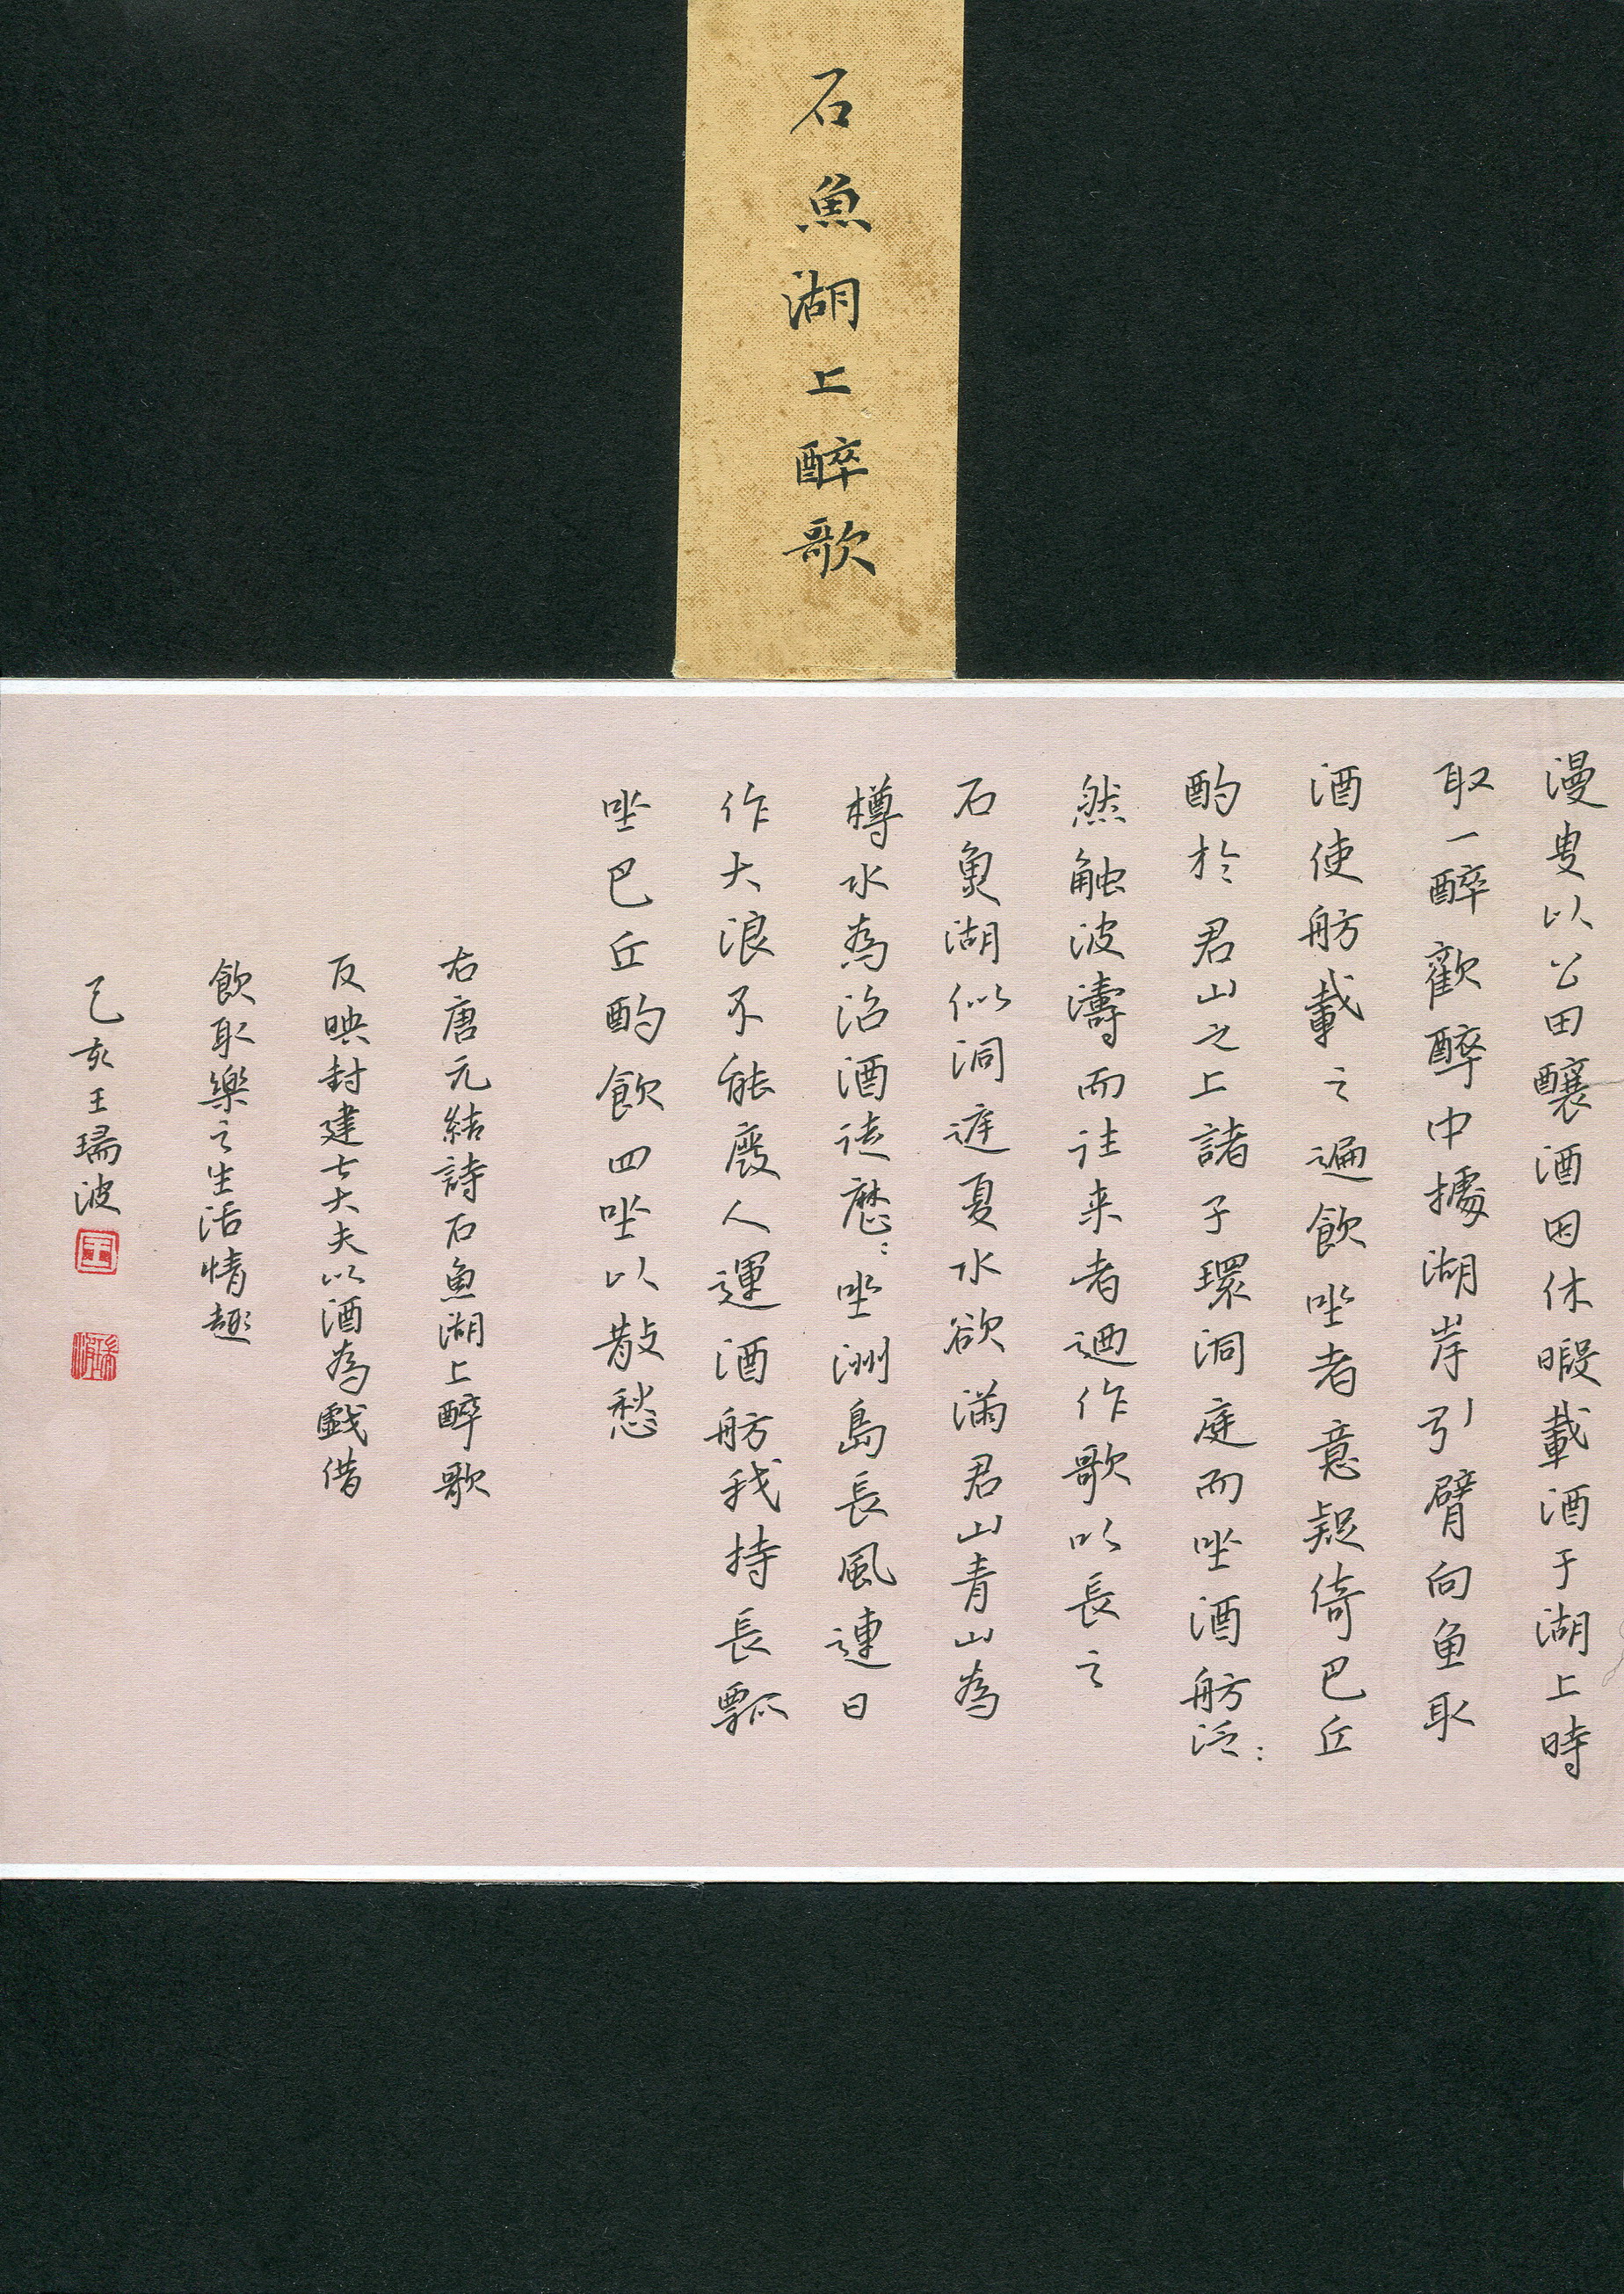 石魚湖上醉歌
漫叟以公田釀酒因休暇載酒于湖上時
取一醉歡醉中據湖岸引臂向魚取
酒使舫載之遍飲坐者意疑倚巴丘
酌於君山之上諸子環洞庭而坐酒舫泛:
然觸波濤而往来者廼作歌以長之
石魚湖似洞遟夏水欲滿君山青山為
樽水為沼酒徒歷:坐洲島長風連日
作大浪不能廢人運酒舫我持長瓢
坐巴丘酌飲四坐以散愁
右唐元結詩石魚湖上醉歌
反映封建士大夫以酒為戲借
飲取樂之生活情趣
己亥王瑞波
王
瑞波